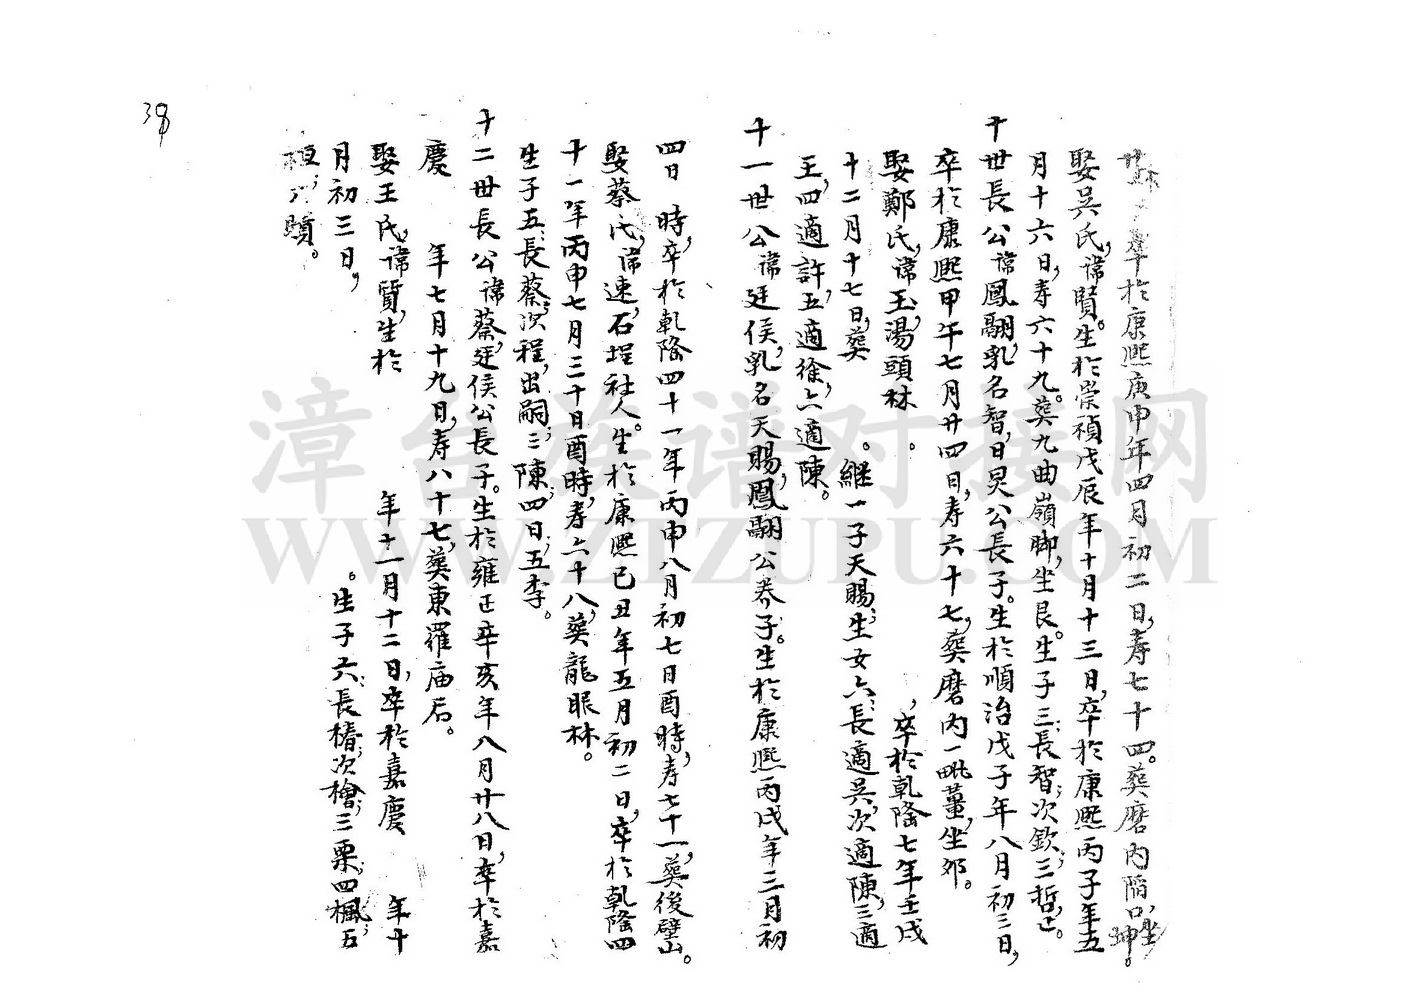 卒於康熙庚申年四月初二日，寿七十四。葬磨內隔口，坐坤。
娶吴氏，諱賢。生於崇禎戊辰年十月十三日，卒於康熙丙子年五
月十六日，寿六十九。葬九曲嶺脚，坐艮。生子三：長智，次欽，三哲，正。
十世長公諱鳳翮，乳名智，日炅公長子。生於順治戊子年八月初三日，
卒於康熙甲午七月廿四日，寿六十七，葬磨內一毗董，坐卯。
娶鄭氏，諱玉，湯頭林　。　，卒於乾隆七年壬戌
十二月十七日，葬　。繼一子天賜；生女六：長適吴，次適陳，三適
王，四適許，五適徐，六適陳。
十一世公諱廷侯，乳名天賜，鳳翮公养子。生於康熙丙戌年三月初
四日　時，卒於乾隆四十一年丙申八月初七日酉時，寿七十一，葬後壁山。
娶蔡氏，諱速，石埕社人。生於康熙己丑年五月初二日，卒於乾隆四
十一年丙申七月三十日酉時，寿六十八，葬龍眼林。
生子五：長蔡，次程，出嗣，三陳，四日，五李。
十二世長公諱蔡，廷侯公長子。生於雍正辛亥年八月廿八日，卒於嘉
慶　年七月十九日，寿八十七，葬東羅庙后。
娶王氏，諱質，生於　年十一月十二日，卒於嘉慶　年十
月初三日，　。生子六：長椿，次檜，三栗，四楓，五
桓，六賾。
38
漳台族谱对接网
WWW.ZIZUPU.COM